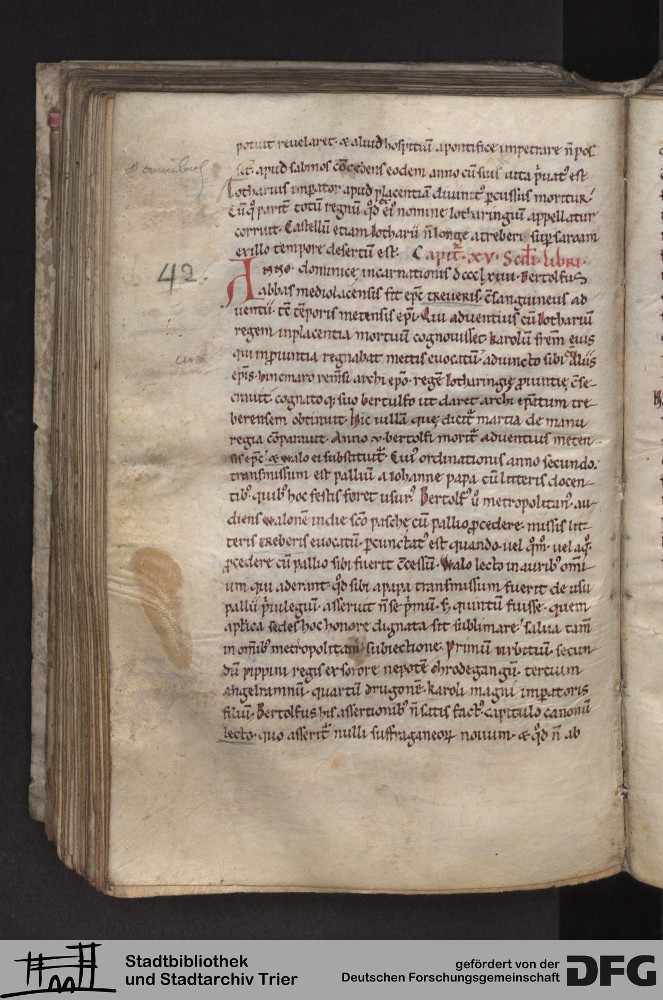 potuit revelaret. & aliud hospitiū apontifice impetrare n̄ pos
set. apud sabinos cōcedens eodem anno cū suis vita p̄vatꝰ est
Lotharius imꝑator apud placentiā divinitꝰ ꝑcussus moritur.
Cū qͦ parit̄ totū regnū qd̄ eiꝰ nomine lotharingiū appellatur
corruit. Castellū etiam lotharii n̄ longe atreberi sup̄ saroam
ex illo tempore desertū est. Capit̄. xv. Scd̄i libri.
42.
Anno. dominicę incarnationis dccclxviiii. Bertolfus
abbas mediolacensis fit ep̄c treveris. cōsanguineus ad
ventii. tc̄ tēporis metensis ep̄i. Qui adventius cū lothariū
regem inplacentia mortuū cognovisset. karolū fr̄em eius
qui inp̄vintia regnabat mettis evocatū. adiuncto sibi aliis
ep̄is. hincmaro remsi archi ep̄o. regē lotharingię p̄vintię cōse
cravit. cognato qꝫ suo bertulfo ut daret archi ep̄atum tre
berensem obtinuit. Hic villā que dicit̄ martia de manu
regia cōparavit. Anno v. bertolfi morit̄ adventius meten
sis ep̄c. & walo ei substituit̄. Cuiꝰ ordinationis anno secundo.
transmissum est palliū a iohanne papa cū litteris docen
tibꝰ. quibꝰ hoc festis foret usurꝰ. Bertolfꝰ ū metropolitanꝰ. au
diens walonē in die sc̄o paschę cū pallio ꝓcedere. missis lit
teris treberis evocatū. ꝑcunctatꝰ est quando. vel qm̄. vel aqͦ.
ꝓcedere cū pallio sibi fuerit cōcessū. Walo lecto in auribꝰ omi
um qui aderant. qd̄ sibi apapa transmissum fuerit de usu
pallii p̄vilegiū. asseruit n̄ se p̄mū. sꝫ quintū fuisse. quem
apl̄ica sedes hoc honore dignata sit sublimare. salva tam̄
in om̄ibꝰ metropolitani subiectione. Primū urbitiū. secun
dū pippini regis ex sorore nepotē chrodegangū. tercium
angelramnū. quartū drugonē. karoli magni imꝑatoris
filiū. Bertolfus his assertionibꝰ n̄ satis factꝰ. capitulo canonū
lecto. quo asserit̄ nulli suffraganeoꝝ novum. & qd̄ n̄ ab
Stadtbibliothek
und Stadtarchiv Trier
gefördert von der
Deutschen Forschungsgemeinschaft
DFG